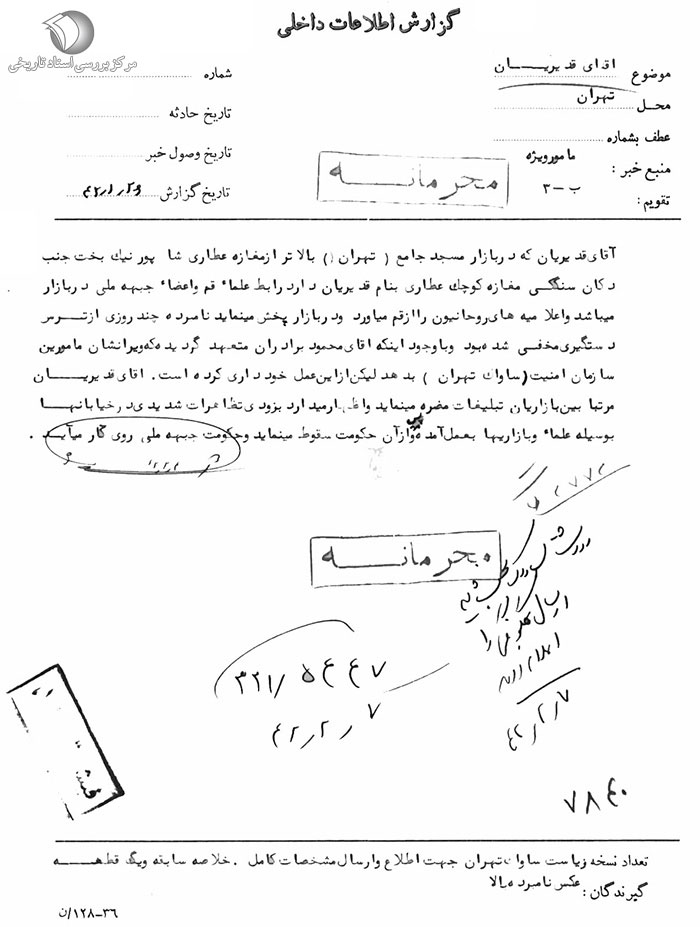 گزارش اطلاعات داخلی
مرکز بررسی اسناد تاریخی
موضوع اقای قدیریـــان
محل تهران
عطف بشماره
منبع خبر : مامورویژه
تقویم: ب-۳
شماره
تاریخ حادثه
تاریخ وصول خبر
تاریخ گزارش
محرمانـــه
آقای قدیریان که دربازار مسجد جامع ( تهران ) بالا تر ازمغازه عطاری شا پور نیك بخت جنب
دکان سنگکی مغازه کوچك عطاری بنام قدیریان دارد رابط علماء قم واعضاء جبهه ملی دربازار
میباشد واعلا میه های روحانیون را ازقم میاورد ودربازار پخش مینماید نامبرده چند روزی ازتــرس
دستگیری مخفی شده بود وباوجود اینکه اقای محمود برادران متعهد گردیده که ویرانشان مامورین
سازمان امنیت (ساواك تهران ) بدهد لیکن ازاین عمل خود داری کرده است . اقای قدیریـــان
مرتبا بین بازاریان تبلیغات مضره مینماید واظهارمیدارد بزودی تظاهرات شدیدی درخیابانهـا
بوسیله علماء وبازاریها بعمل آمده وپس ازآن حکومت سقوط مینماید وحکومت جبهه ملی روی کار میآیـد .
محرمانـــه
۳۲۱/۵۴۴۷
۴۲/۲/۷
۴۲/۲/۷
۷۸۴۰
تعداد نسخه ریاست ساواك تهران جهت اطلاع وارسال مشخصات کامل . خلاصه سابقه ویك قطعـــه
گیرندگان : عکس نامبرده بالا
۳۶-۱۲۸/ن